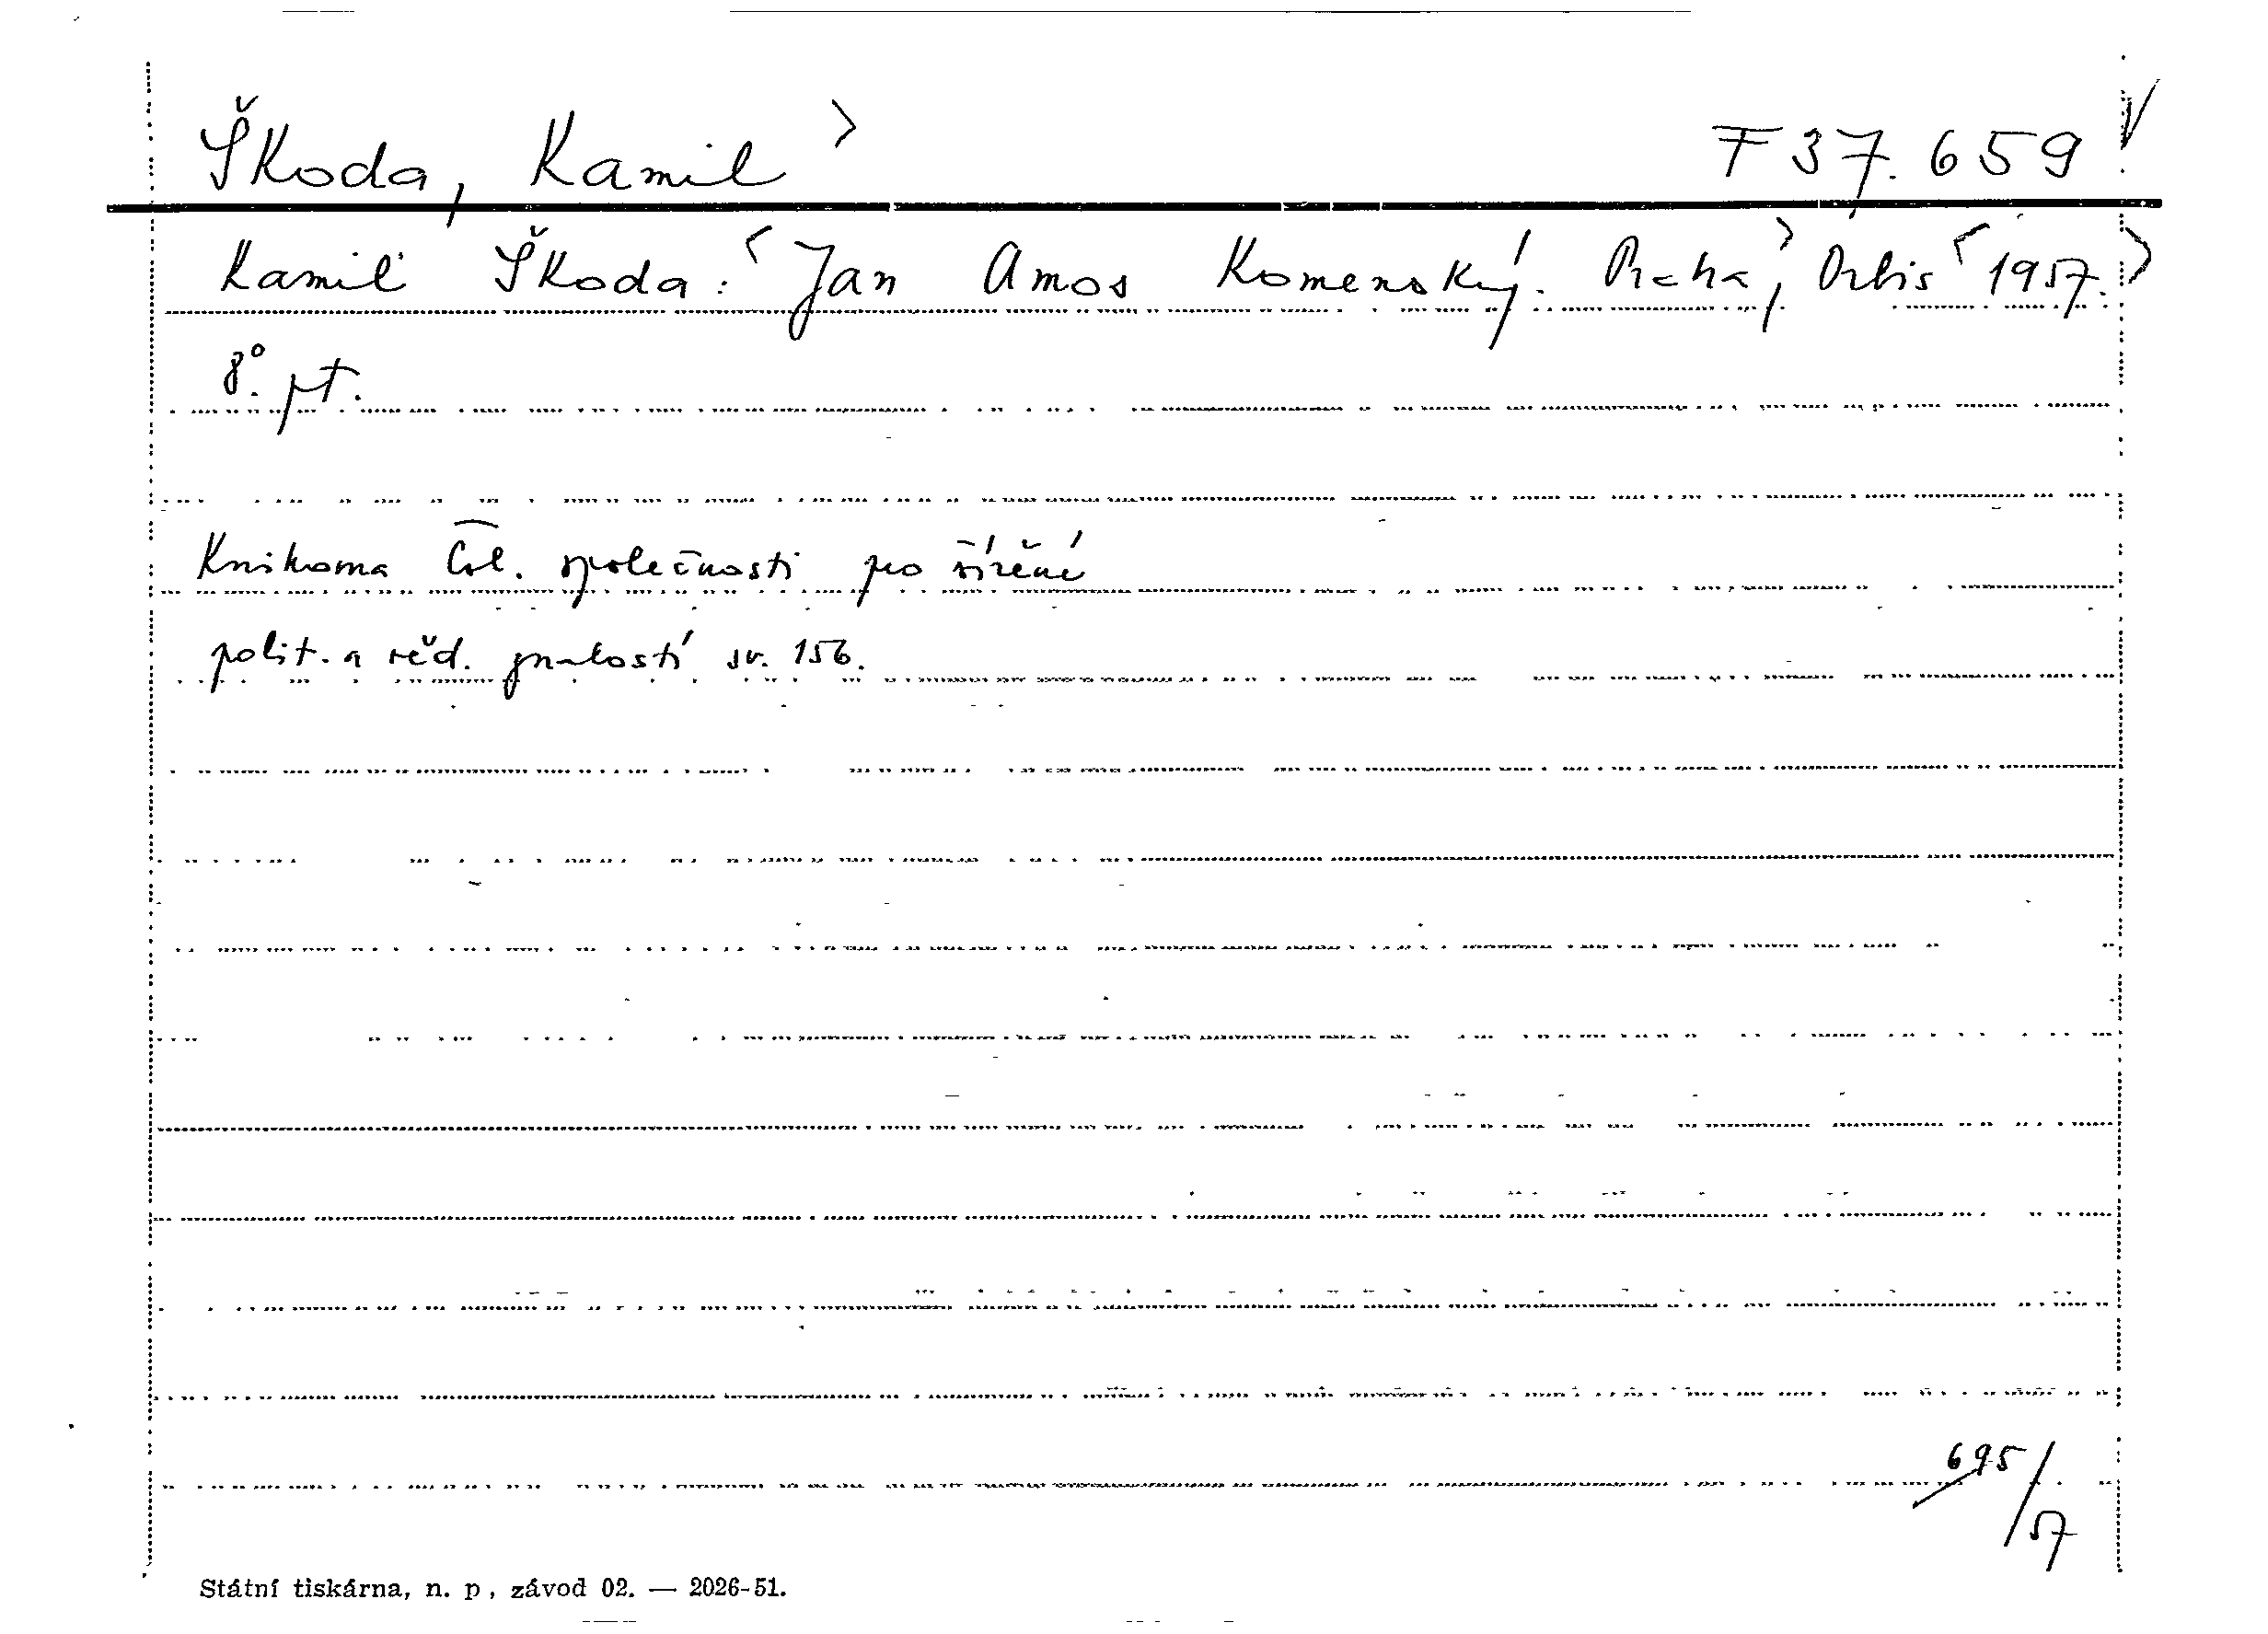 Škoda, Kamil F 37.659
Kamil Škoda: Jan Amos Komenský. Praha, Orbis 1957.
8°. pt.
Knihovna Čsl. společnosti pro šíření
polit. a věd. znalostí sv. 156.
695/57
Státní tiskárna, n. p., závod 02. — 2026-51.